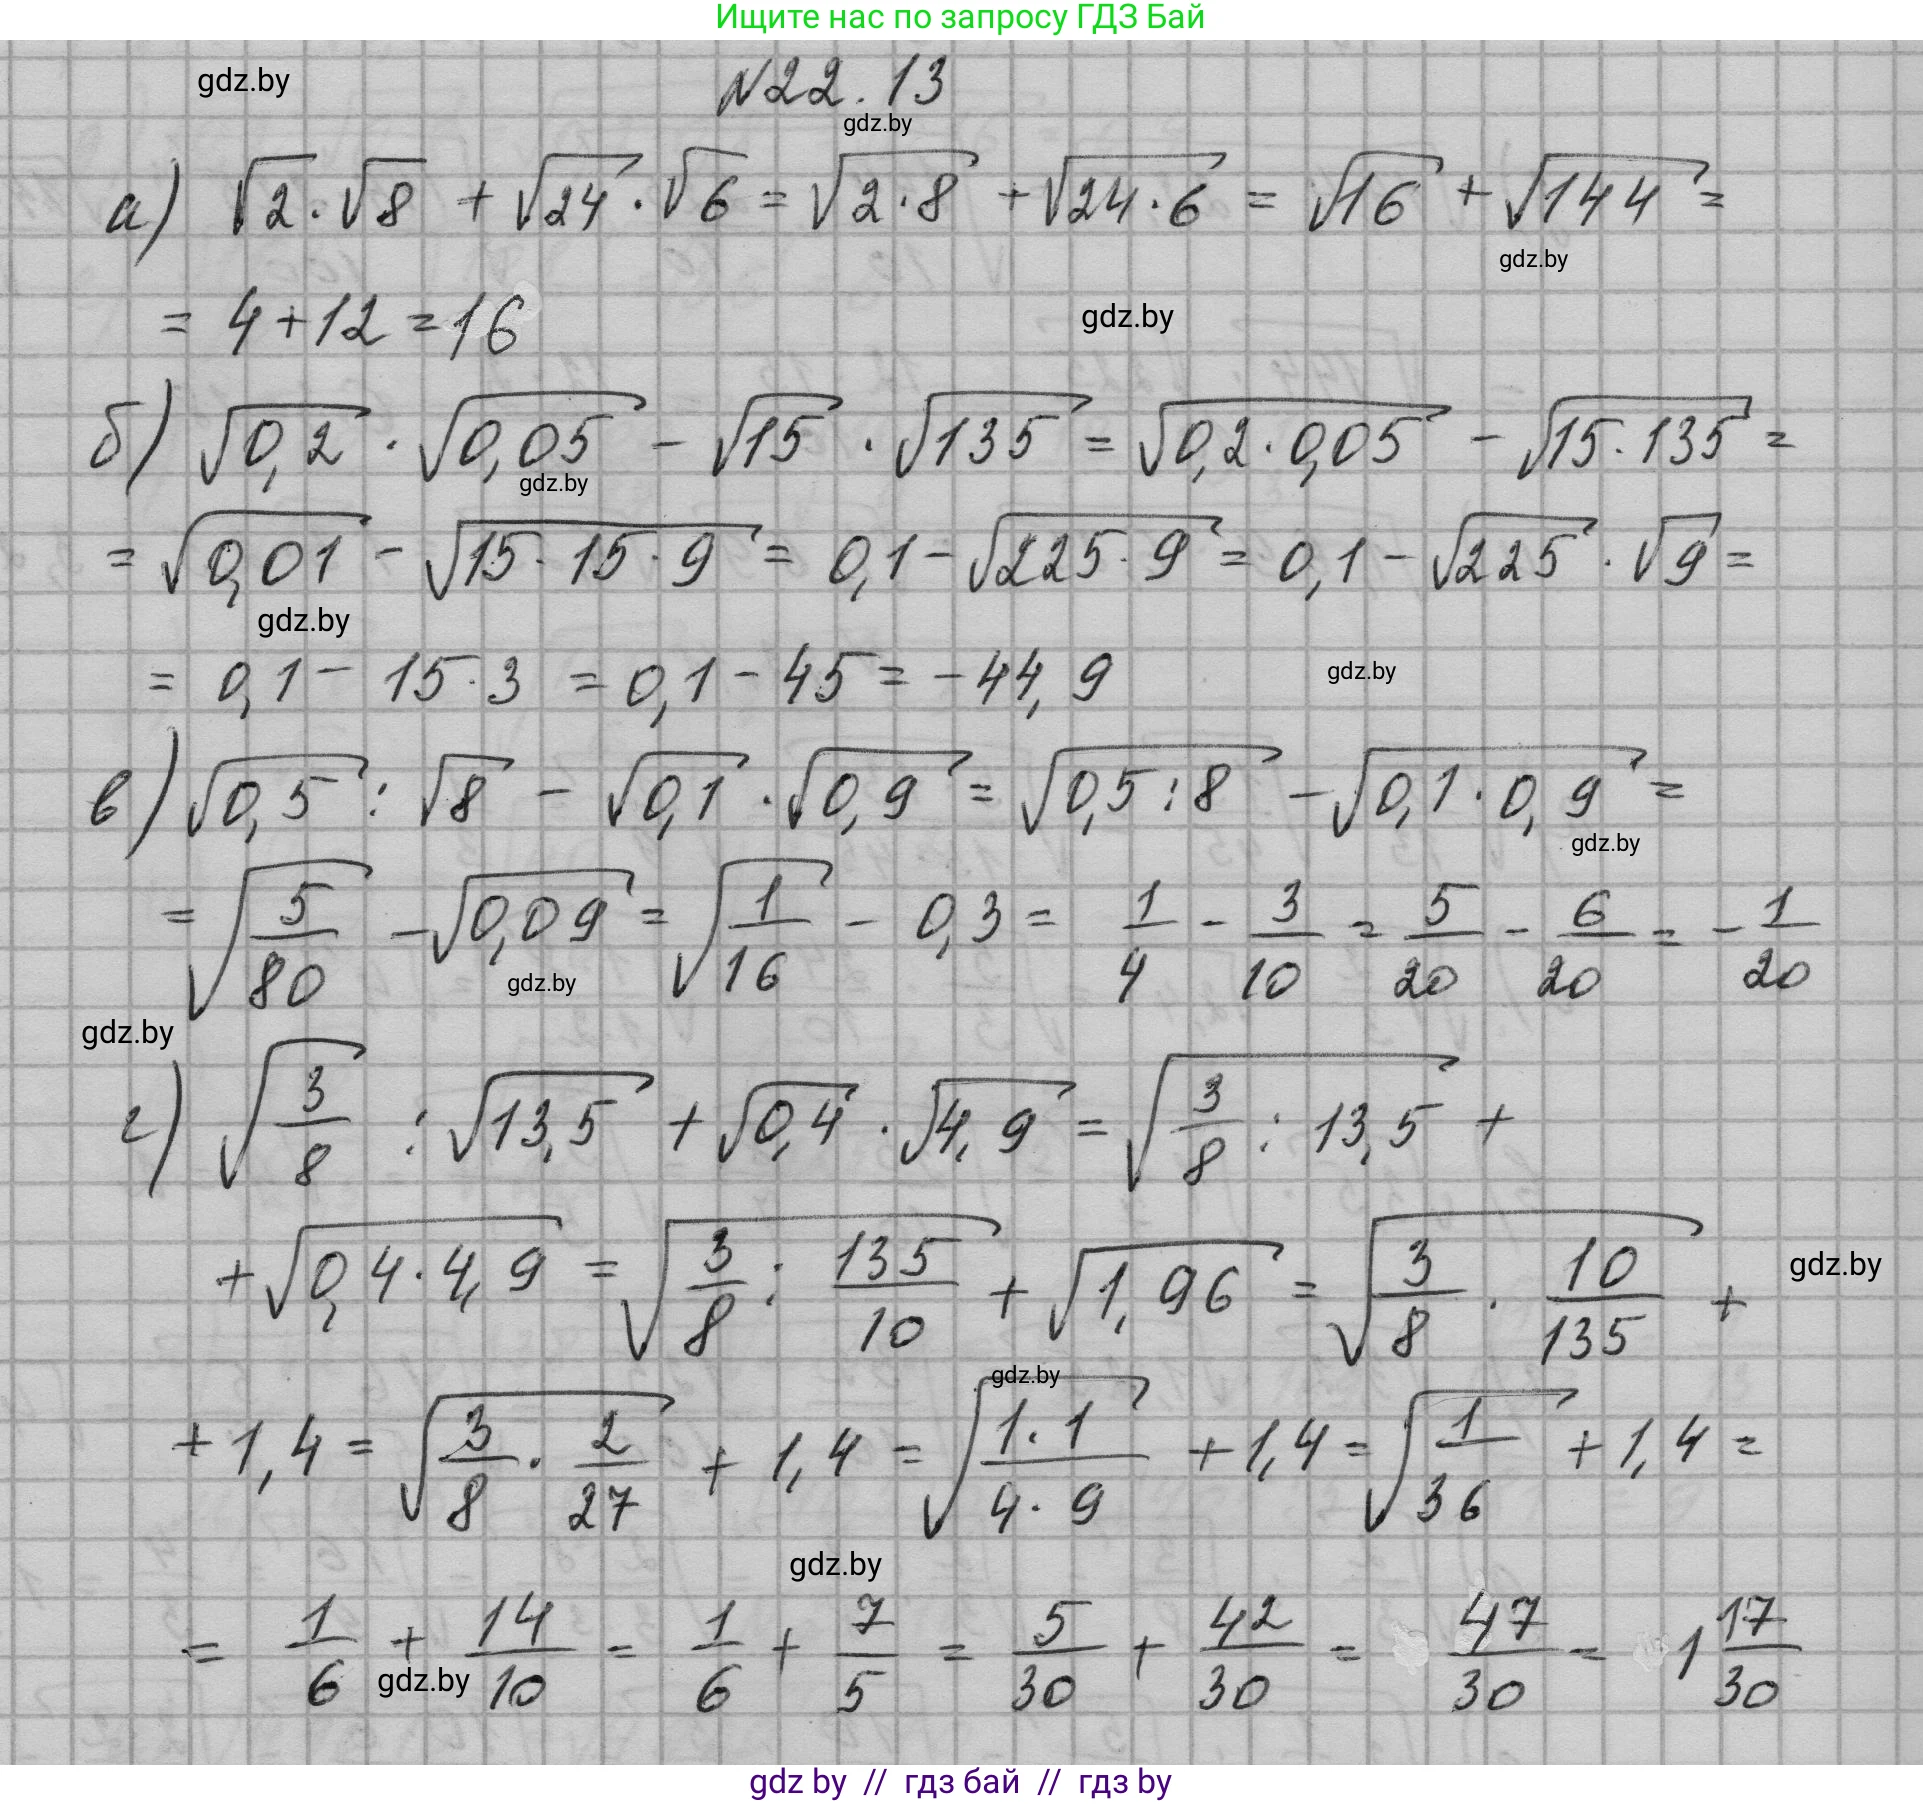 Ищите нас по запросу ГДЗ Бай
gdz.by
N22.13
gdz.by
а) √2 · √8 + √24 · √6 = √(2·8) + √(24·6) = √16 + √144 =
gdz.by
= 4+12 = 16
gdz.by
б) √0,2 · √0,05 - √15 · √135 = √(0,2·0,05) - √(15·135) =
gdz.by
= √0,01 - √(15·15·9) = 0,1 - √(225·9) = 0,1 - √225 · √9 =
gdz.by
= 0,1 - 15·3 = 0,1 - 45 = -44,9
gdz.by
в) √0,5 : √8 - √0,1 · √0,9 = √(0,5:8) - √(0,1·0,9) =
gdz.by
= √(5/80) - √0,09 = √(1/16) - 0,3 = 1/4 - 3/10 = 5/20 - 6/20 = - 1/20
gdz.by
gdz.by
г) √(3/8) : √13,5 + √0,4 · √4,9 = √(3/8 : 13,5) +
+ √(0,4·4,9) = √(3/8 : 135/10) + √1,96 = √(3/8 · 10/135) +
gdz.by
gdz.by
+ 1,4 = √(3/8 · 2/27) + 1,4 = √((1·1)/(4·9)) + 1,4 = √(1/36) + 1,4 =
gdz.by
= 1/6 + 14/10 = 1/6 + 7/5 = 5/30 + 42/30 = 47/30 = 1 17/30
gdz.by
gdz by // гдз бай // гдз by